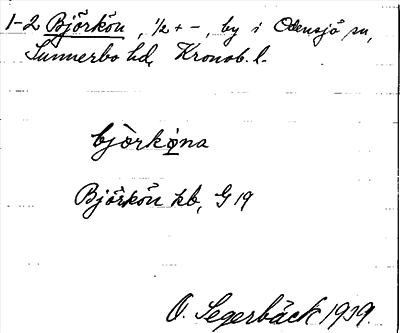 1-2 Björkön, 1/2 + -, by i Odensjö sn,
Sunnerbo hd, Kronob. l.
bjòrkǫna
Björkön kb, G 19
O. Segerbäck 1919.